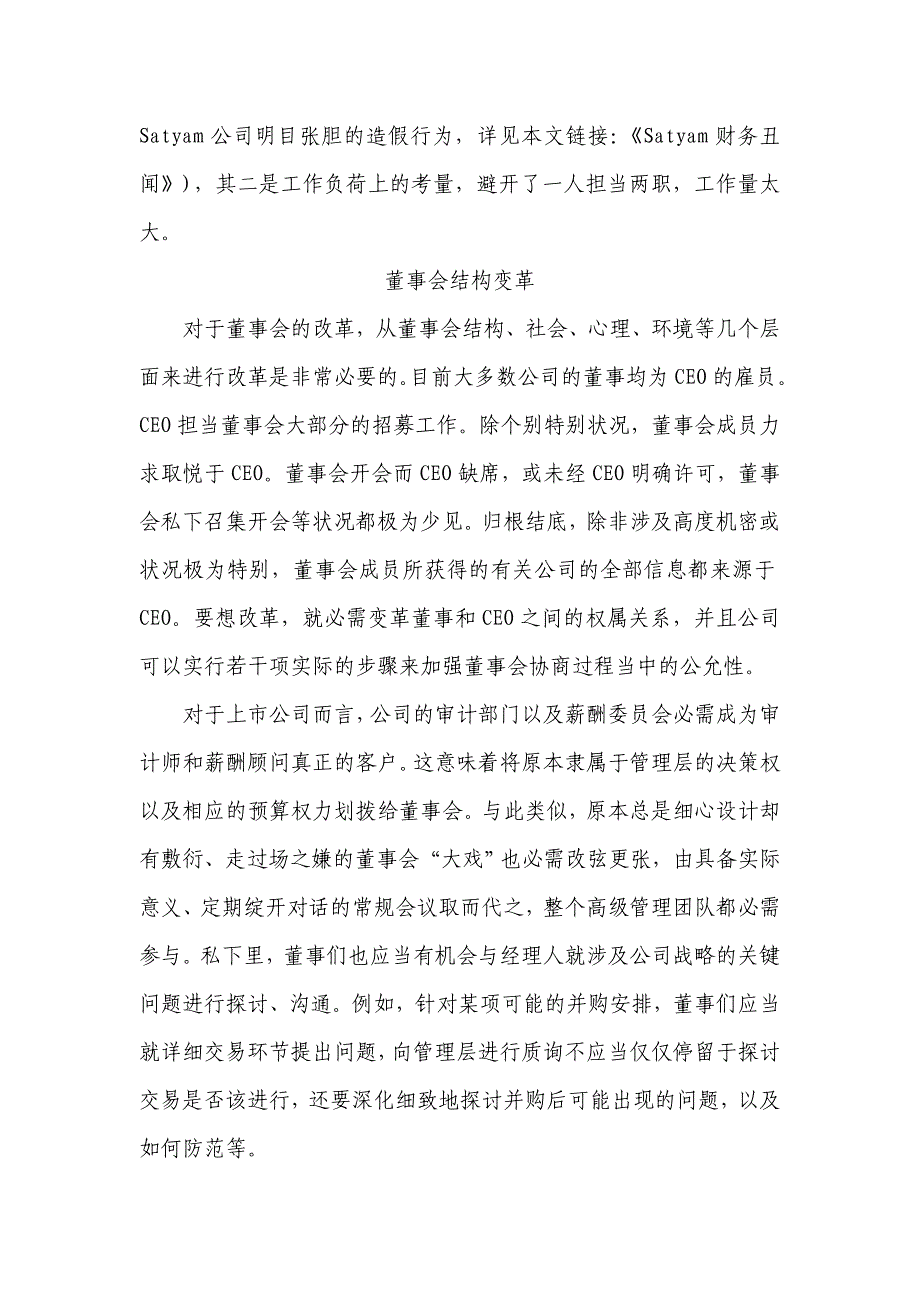 Satyam 公司明目张胆的造假行为，详见本文链接：《Satyam 财务丑
闻》），其二是工作负荷上的考量，避开了一人担当两职，工作量太
大。
董事会结构变革
对于董事会的改革，从董事会结构、社会、心理、环境等几个层
面来进行改革是非常必要的。目前大多数公司的董事均为 CEO 的雇员。
CEO 担当董事会大部分的招募工作。除个别特别状况，董事会成员力
求取悦于 CEO。董事会开会而 CEO 缺席，或未经 CEO 明确许可，董事
会私下召集开会等状况都极为少见。归根结底，除非涉及高度机密或
状况极为特别，董事会成员所获得的有关公司的全部信息都来源于
CEO。要想改革，就必需变革董事和 CEO 之间的权属关系，并且公司
可以实行若干项实际的步骤来加强董事会协商过程当中的公允性。
对于上市公司而言，公司的审计部门以及薪酬委员会必需成为审
计师和薪酬顾问真正的客户。这意味着将原本隶属于管理层的决策权
以及相应的预算权力划拨给董事会。与此类似，原本总是细心设计却
有敷衍、走过场之嫌的董事会“大戏”也必需改弦更张，由具备实际
意义、定期绽开对话的常规会议取而代之，整个高级管理团队都必需
参与。私下里，董事们也应当有机会与经理人就涉及公司战略的关键
问题进行探讨、沟通。例如，针对某项可能的并购安排，董事们应当
就详细交易环节提出问题，向管理层进行质询不应当仅仅停留于探讨
交易是否该进行，还要深化细致地探讨并购后可能出现的问题，以及
如何防范等。